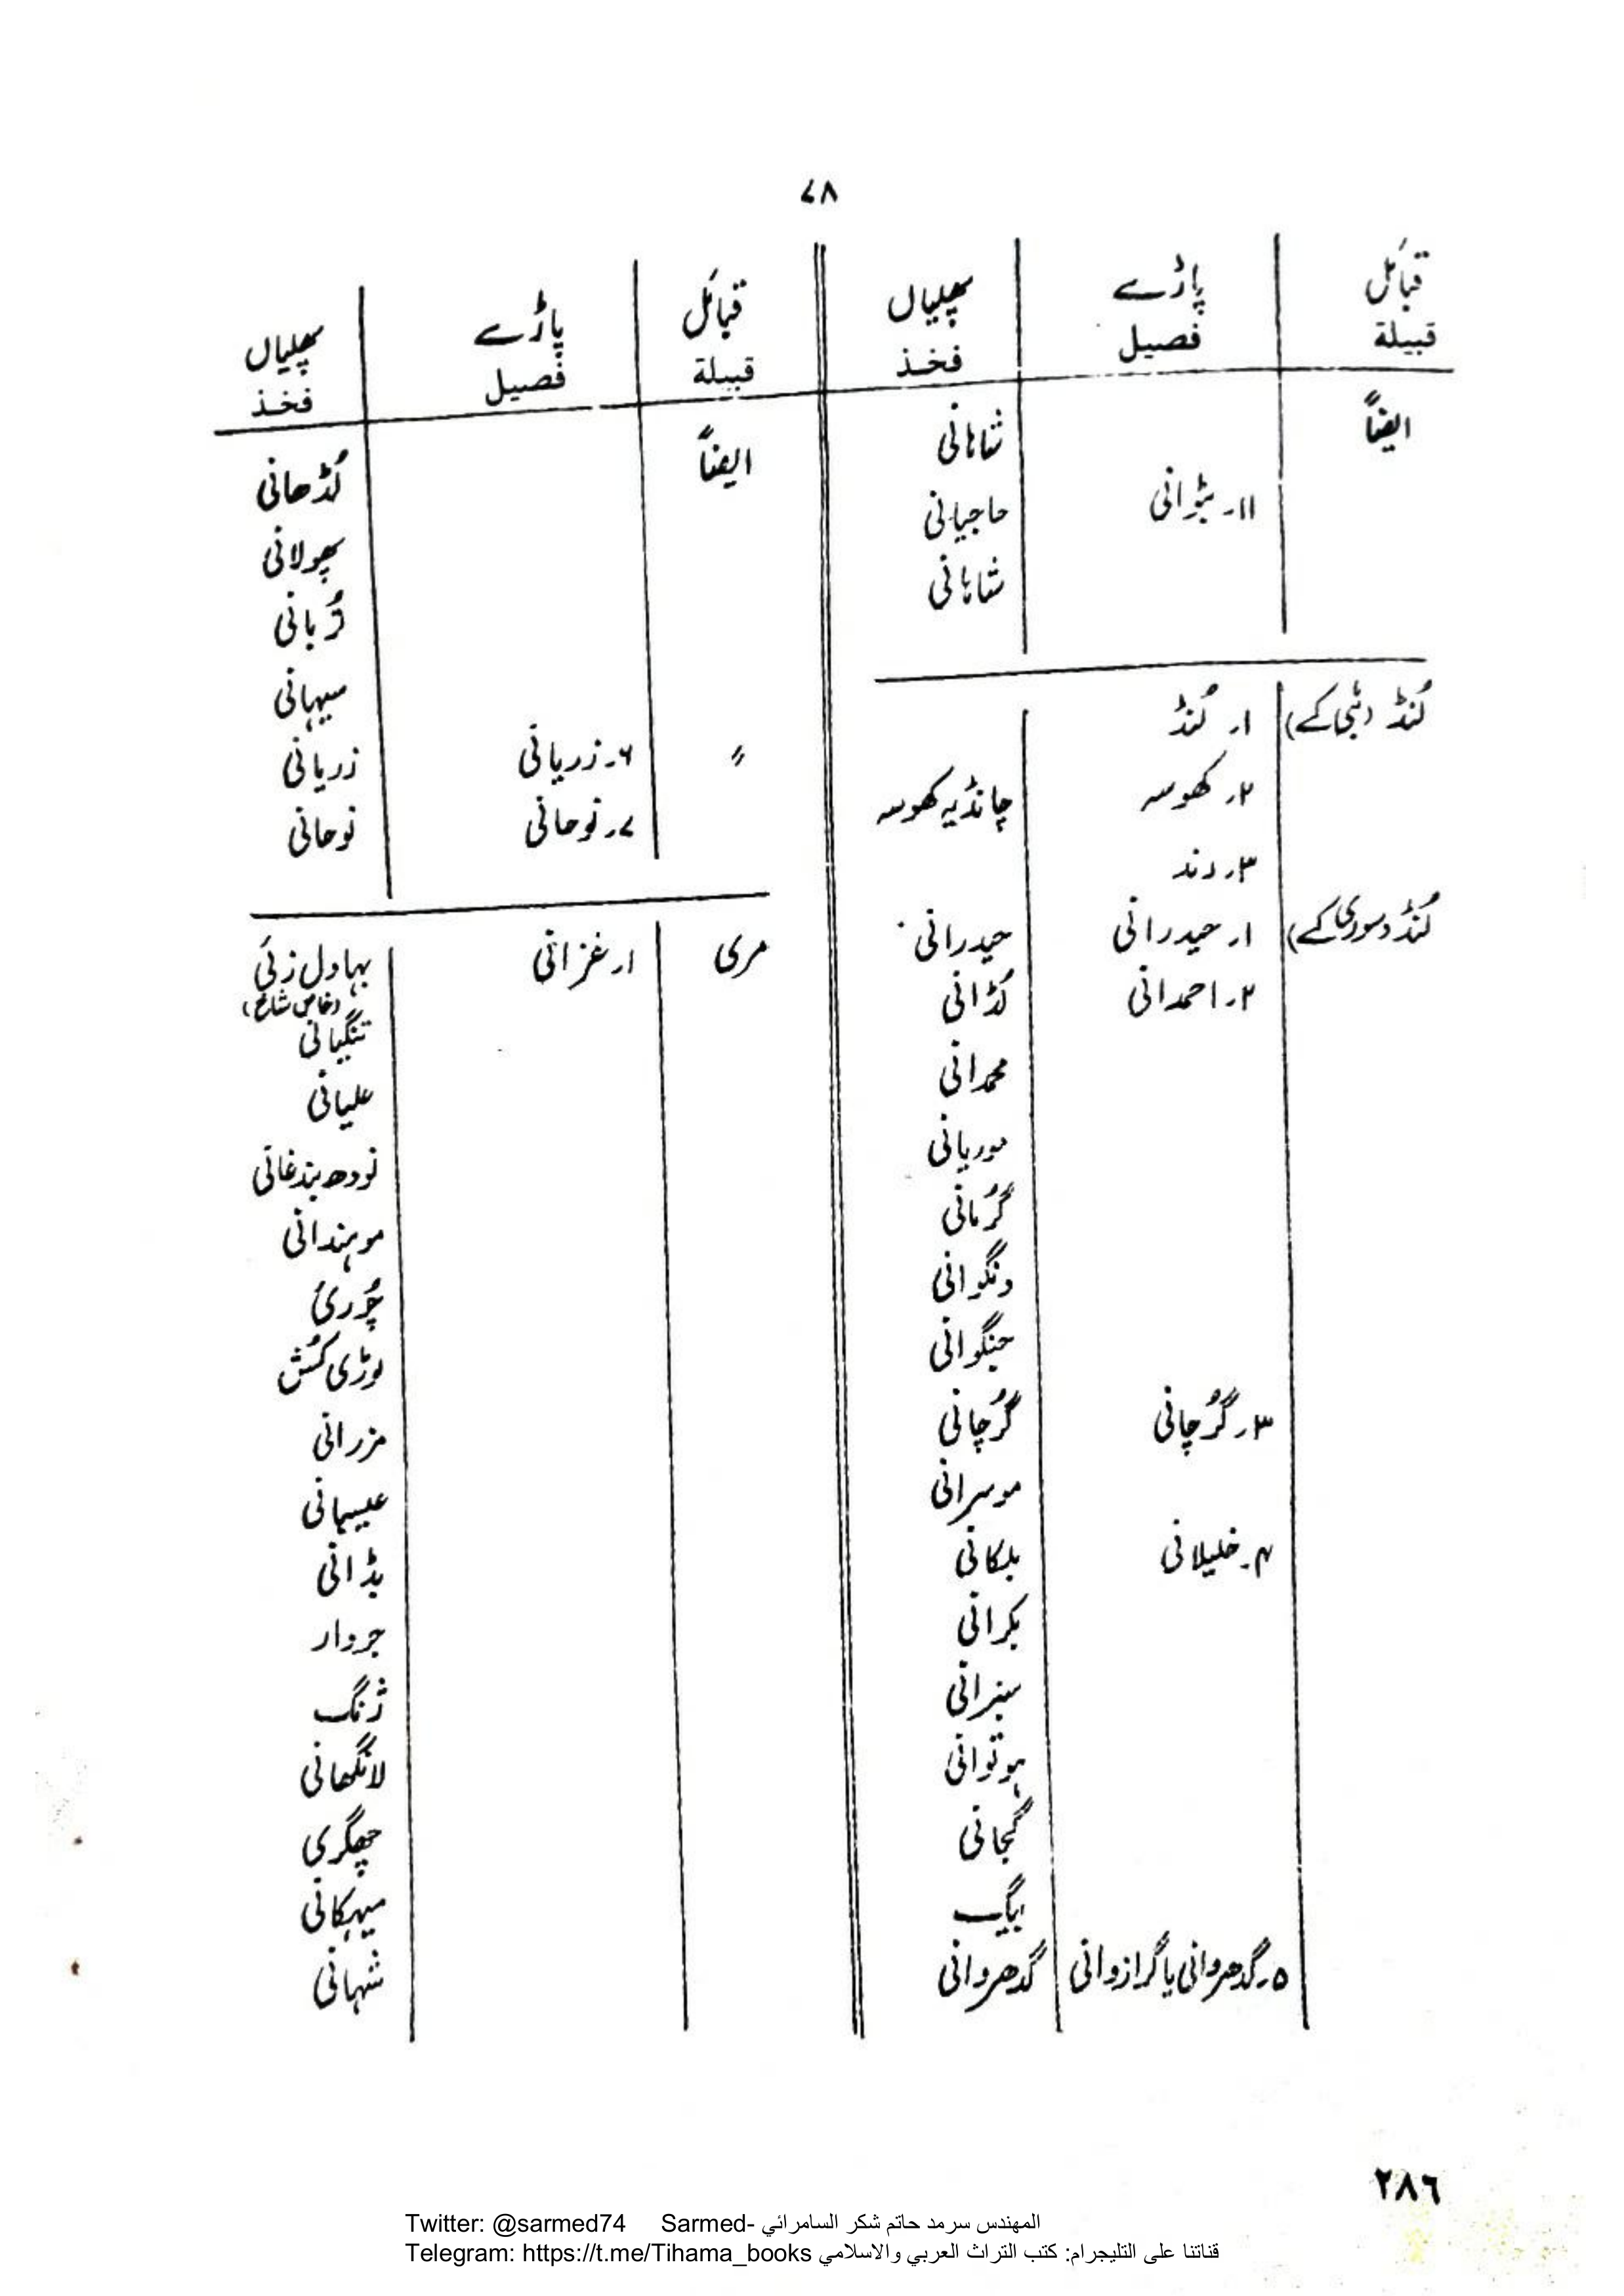 ۷۸
قبائل پاڑے پھلیاں
قبيلة فصيل فخذ
ایضاً شاہانی
۱۱۔ بڑوانی حاجیانی
شاہانی
لُنڈ (ٹبی کے) ۱۔ لُنڈ
۲۔ کھوسہ چانڈیہ کھوسہ
۳۔ رند
لُنڈ (سوری کے) ۱۔ حیدرانی حیدرانی
۲۔ احمدانی لُڈانی
محمدانی
موریانی
گُرمانی
ونگوانی
جنگوانی
۳۔ گُرچانی گُرچانی
موسرانی
۴۔ خلیلانی بلکانی
بکرانی
سنبرانی
ہوتوانی
گجانی
بیگ
۵۔ گدھروانی یا گرازوانی گدھروانی
قبائل پاڑے پھلیاں
قبيلة فصيل فخذ
ایضاً لُڈھانی
پھولانی
سیہانی
〃 ۶۔ زریانی زریانی
۷۔ نوحانی نوحانی
مری ۱۔ غزانی بہاول زئی
(خاص شاخ)
تنگیانی
علیانی
نودھ بندغانی
موہندانی
چُری
لوڑی کُش
مزرانی
عیسیانی
بڈانی
جروار
ژنگ
لانگھانی
چھلگری
میہکانی
شہانی
٢٨٦
Twitter: @sarmed74 Sarmed- المهندس سرمد حاتم شكر السامرائي
Telegram: https://t.me/Tihama_books قناتنا على التليجرام: كتب التراث العربي والاسلامي